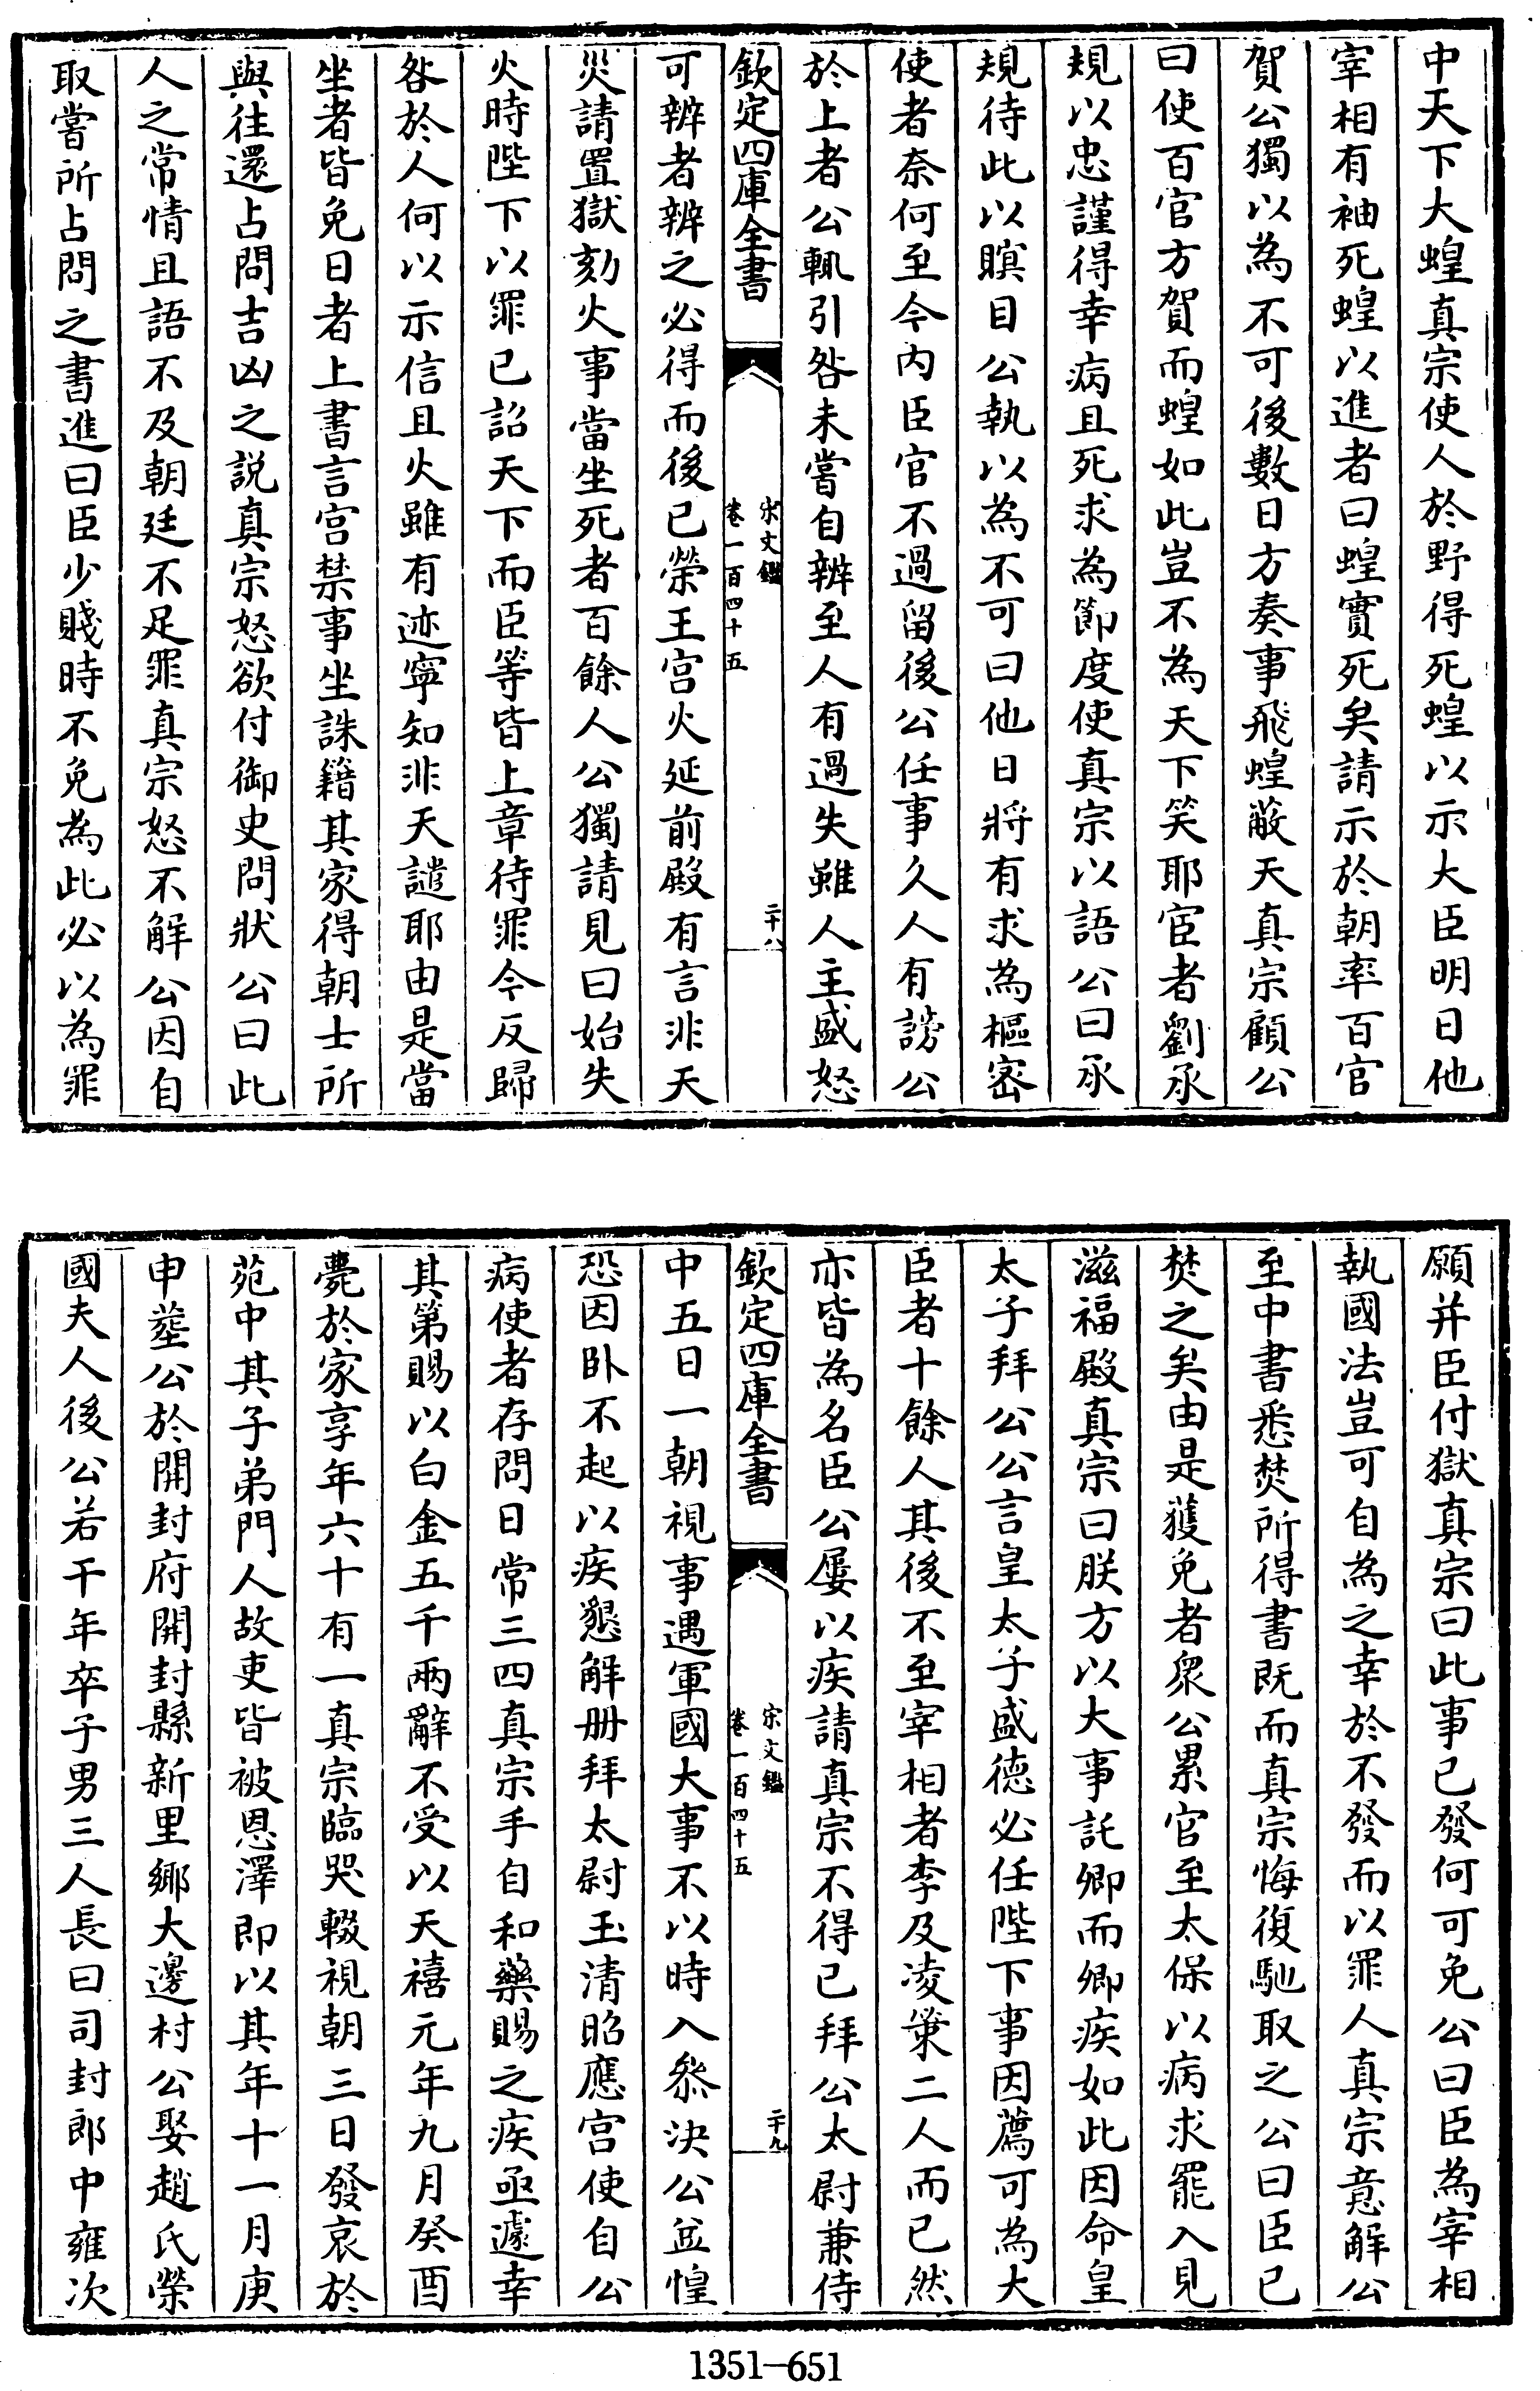 中天下大蝗真宗使人於野得死蝗以示大臣明日他
宰相有袖死蝗以進者曰蝗實死矣請示於朝率百官
賀公獨以為不可後數日方奏事飛蝗蔽天真宗顧公
曰使百官方賀而蝗如此豈不為天下笑耶宦者劉承
規以忠謹得幸病且死求為節度使真宗以語公曰承
規待此以瞑目公執以為不可曰他日將有求為樞密
使者奈何至今内臣官不過留後公任事久人有謗公
於上者公輒引咎未嘗自辨至人有過失雖人主盛怒
欽定四庫全書
宋文鑑
卷一百四十五
二十八
可辨者辨之必得而後已榮王宫火延前殿有言非天
災請置獄劾火事當坐死者百餘人公獨請見曰始失
火時陛下以罪已詔天下而臣等皆上章待罪今反歸
咎於人何以示信且火雖有迹寧知非天譴耶由是當
坐者皆免日者上書言宫禁事坐誅籍其家得朝士所
與往還占問吉凶之説真宗怒欲付御史問狀公曰此
人之常情且語不及朝廷不足罪真宗怒不解公因自
取嘗所占問之書進曰臣少賤時不免為此必以為罪
願并臣付獄真宗曰此事已發何可免公曰臣為宰相
執國法豈可自為之幸於不發而以罪人真宗意解公
至中書悉焚所得書既而真宗悔復馳取之公曰臣已
焚之矣由是獲免者衆公累官至太保以病求罷入見
滋福殿真宗曰朕方以大事託卿而卿疾如此因命皇
太子拜公公言皇太子盛德必任陛下事因薦可為大
臣者十餘人其後不至宰相者李及凌䇿二人而已然
亦皆為名臣公屢以疾請真宗不得已拜公太尉兼侍
欽定四庫全書
宋文鑑
卷一百四十五
二十九
中五日一朝視事遇軍國大事不以時入叅決公益惶
恐因卧不起以疾懇解册拜太尉玉清昭應宫使自公
病使者存問日常三四真宗手自和藥賜之疾亟遽幸
其第賜以白金五千兩辭不受以天禧元年九月癸酉
薨於家享年六十有一真宗臨哭輟視朝三日發哀於
苑中其子弟門人故吏皆被恩澤即以其年十一月庚
申塟公於開封府開封縣新里鄉大邊村公娶趙氏榮
國夫人後公若干年卒子男三人長曰司封郎中雍次
1351—651